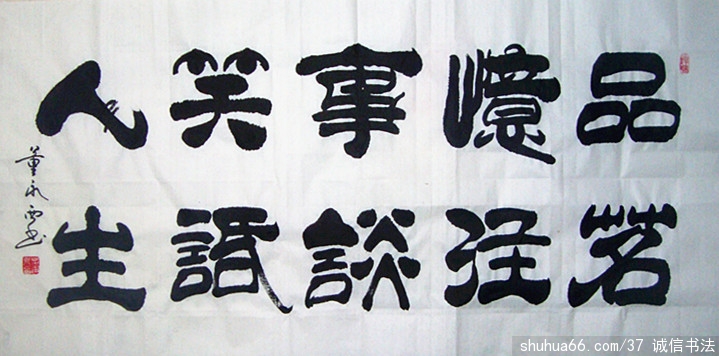 品茗
憶往
事談
笑話
人生
董永西书
shuhua66.com/37 诚信书法